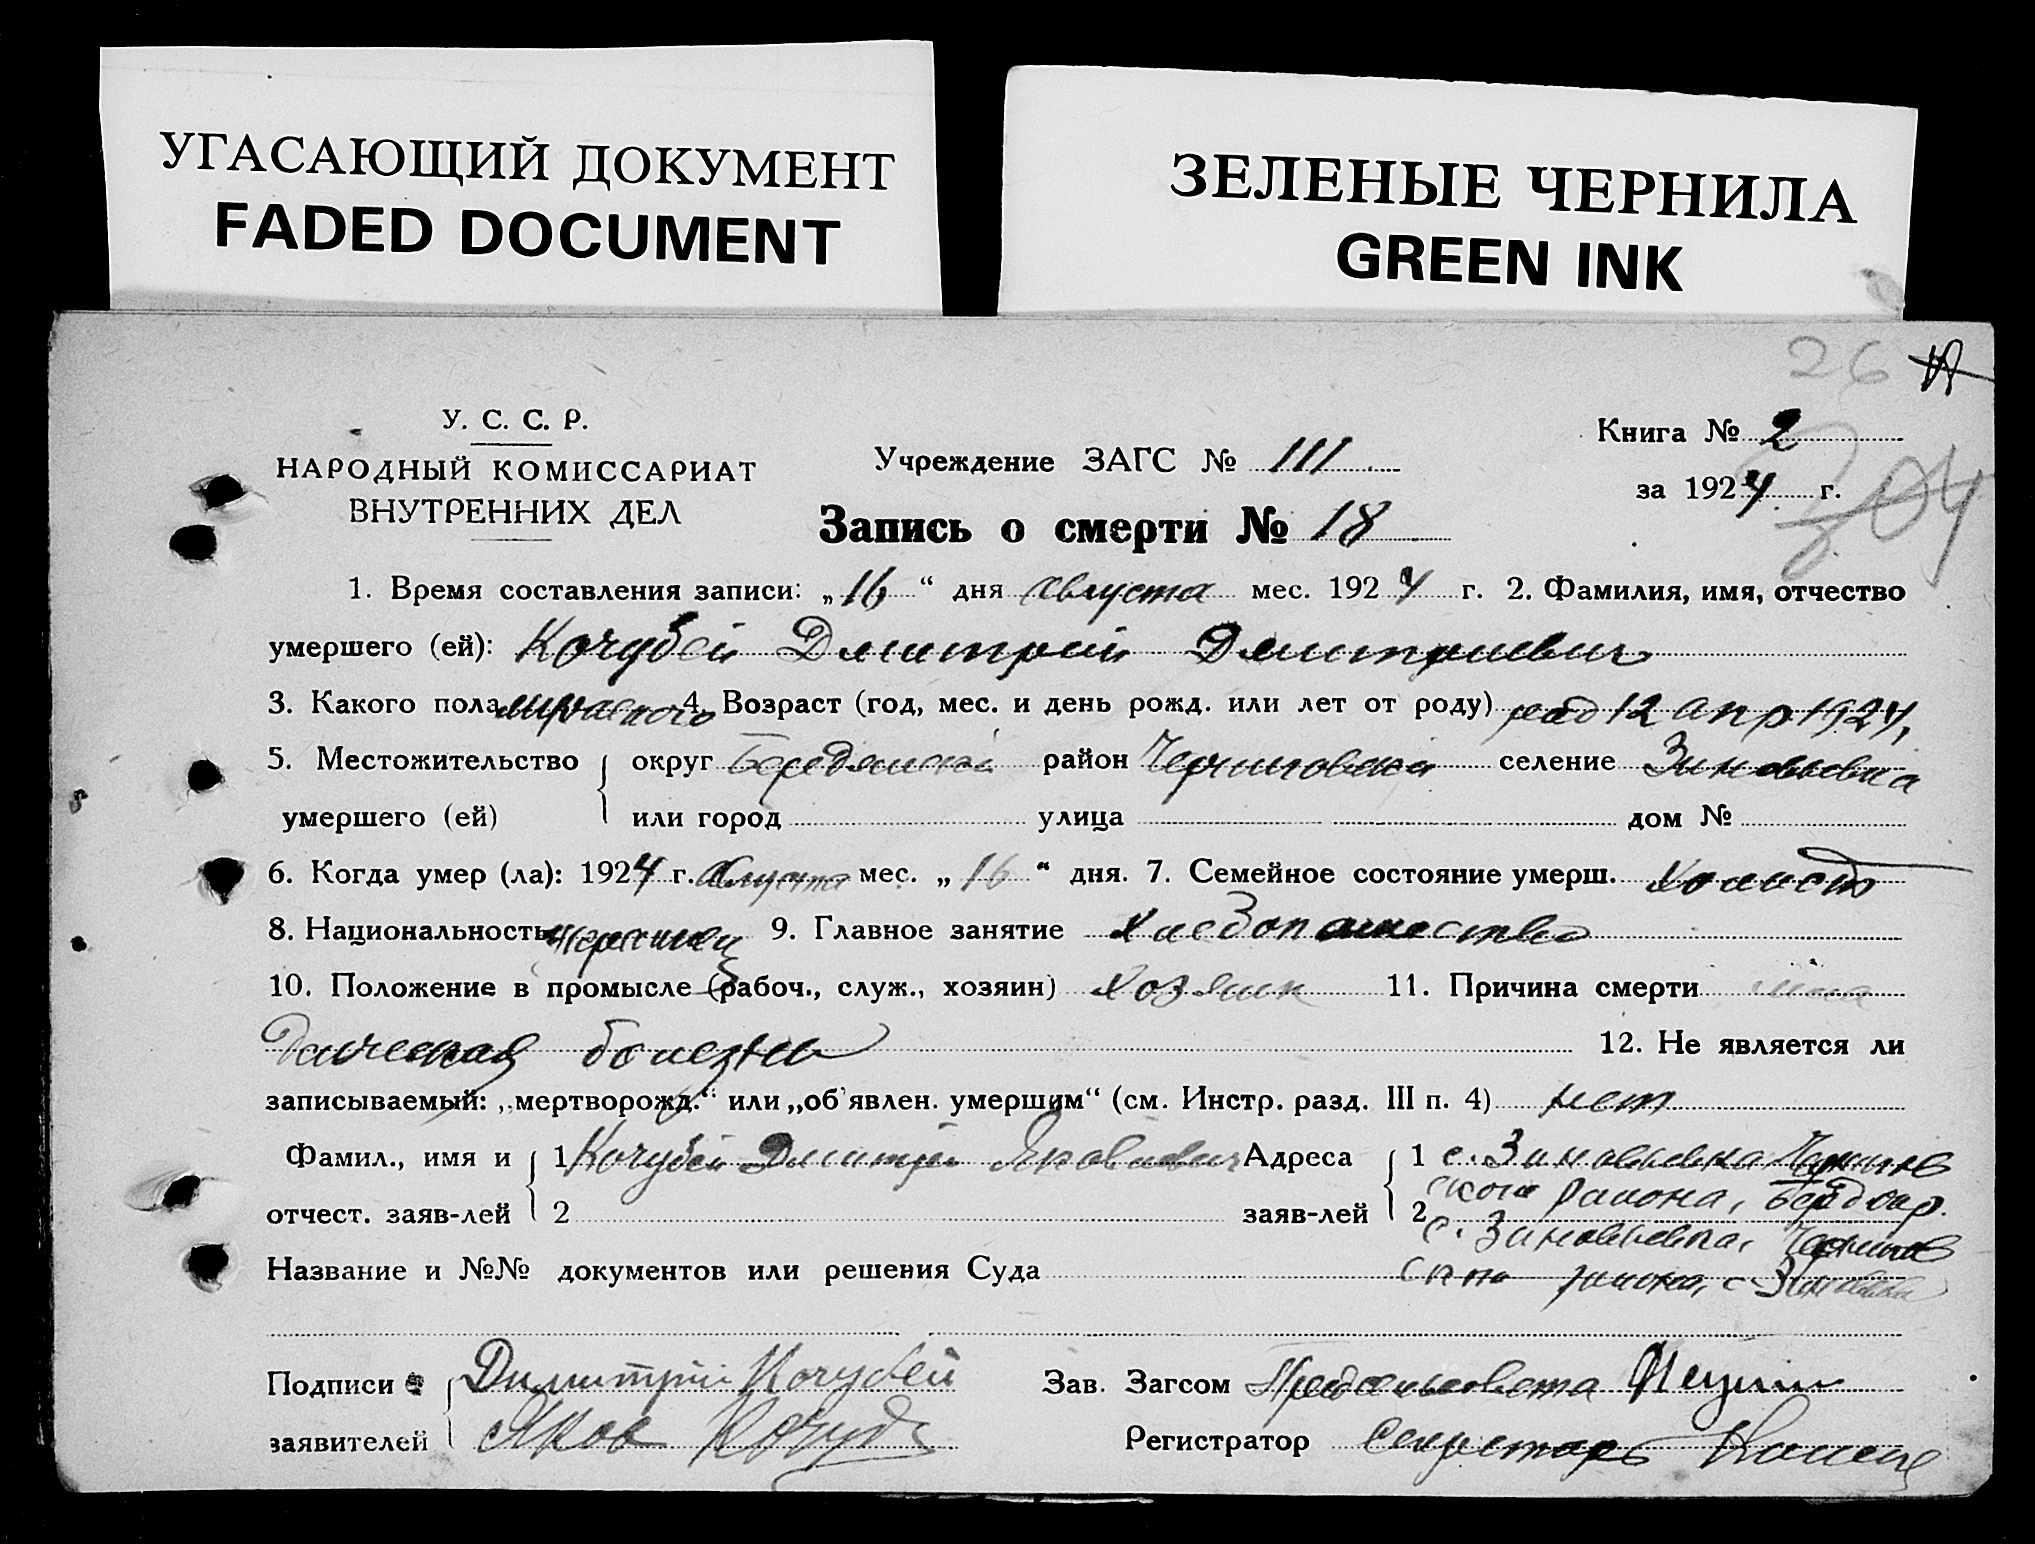 УГАСАЮЩИЙ ДОКУМЕНТ
FADED DOCUMENT
ЗЕЛЕНЫЕ ЧЕРНИЛА
GREEN INK
26
У. С. С. Р.
НАРОДНЫЙ КОМИССАРИАТ
ВНУТРЕННИХ ДЕЛ
Учреждение ЗАГС № 111
Книга № 2
за 1924 г.
204
Запись о смерти № 18
1. Время составления записи: „16“ дня августа мес. 1924 г. 2. Фамилия, имя, отчество
умершего (ей): Кочубей Дмитрий Дмитриевич
3. Какого пола мужского 4. Возраст (год, мес. и день рожд. или лет от роду) 12 апр 1924,
5. Местожительство округ Бердянский район Черниговский селение Зиновьевка
умершего (ей) или город улица дом №
6. Когда умер (ла): 1924 г. августа мес. „16“ дня. 7. Семейное состояние умерш. холост
8. Национальность украинец 9. Главное занятие хлебопашество
10. Положение в промысле (рабоч., служ., хозяин) хозяин 11. Причина смерти
болезнь 12. Не является ли
записываемый: „мертворожд.“ или „об'явлен. умершим“ (см. Инстр. разд. III п. 4) нет
Фамил., имя и 1 Кочубей Дмитрий Яковлевич Адреса 1 с. Зиновьевка Чернигов
ского района, Берд окр.
отчест. заяв-лей 2 заяв-лей 2 с. Зиновьевка, Чернигов
Название и №№ документов или решения Суда ского района, с. Зиновьевка
Подписи Димитрий Кочубей Зав. Загсом Предсельсовета
заявителей Яков Кочубей Регистратор Секретарь